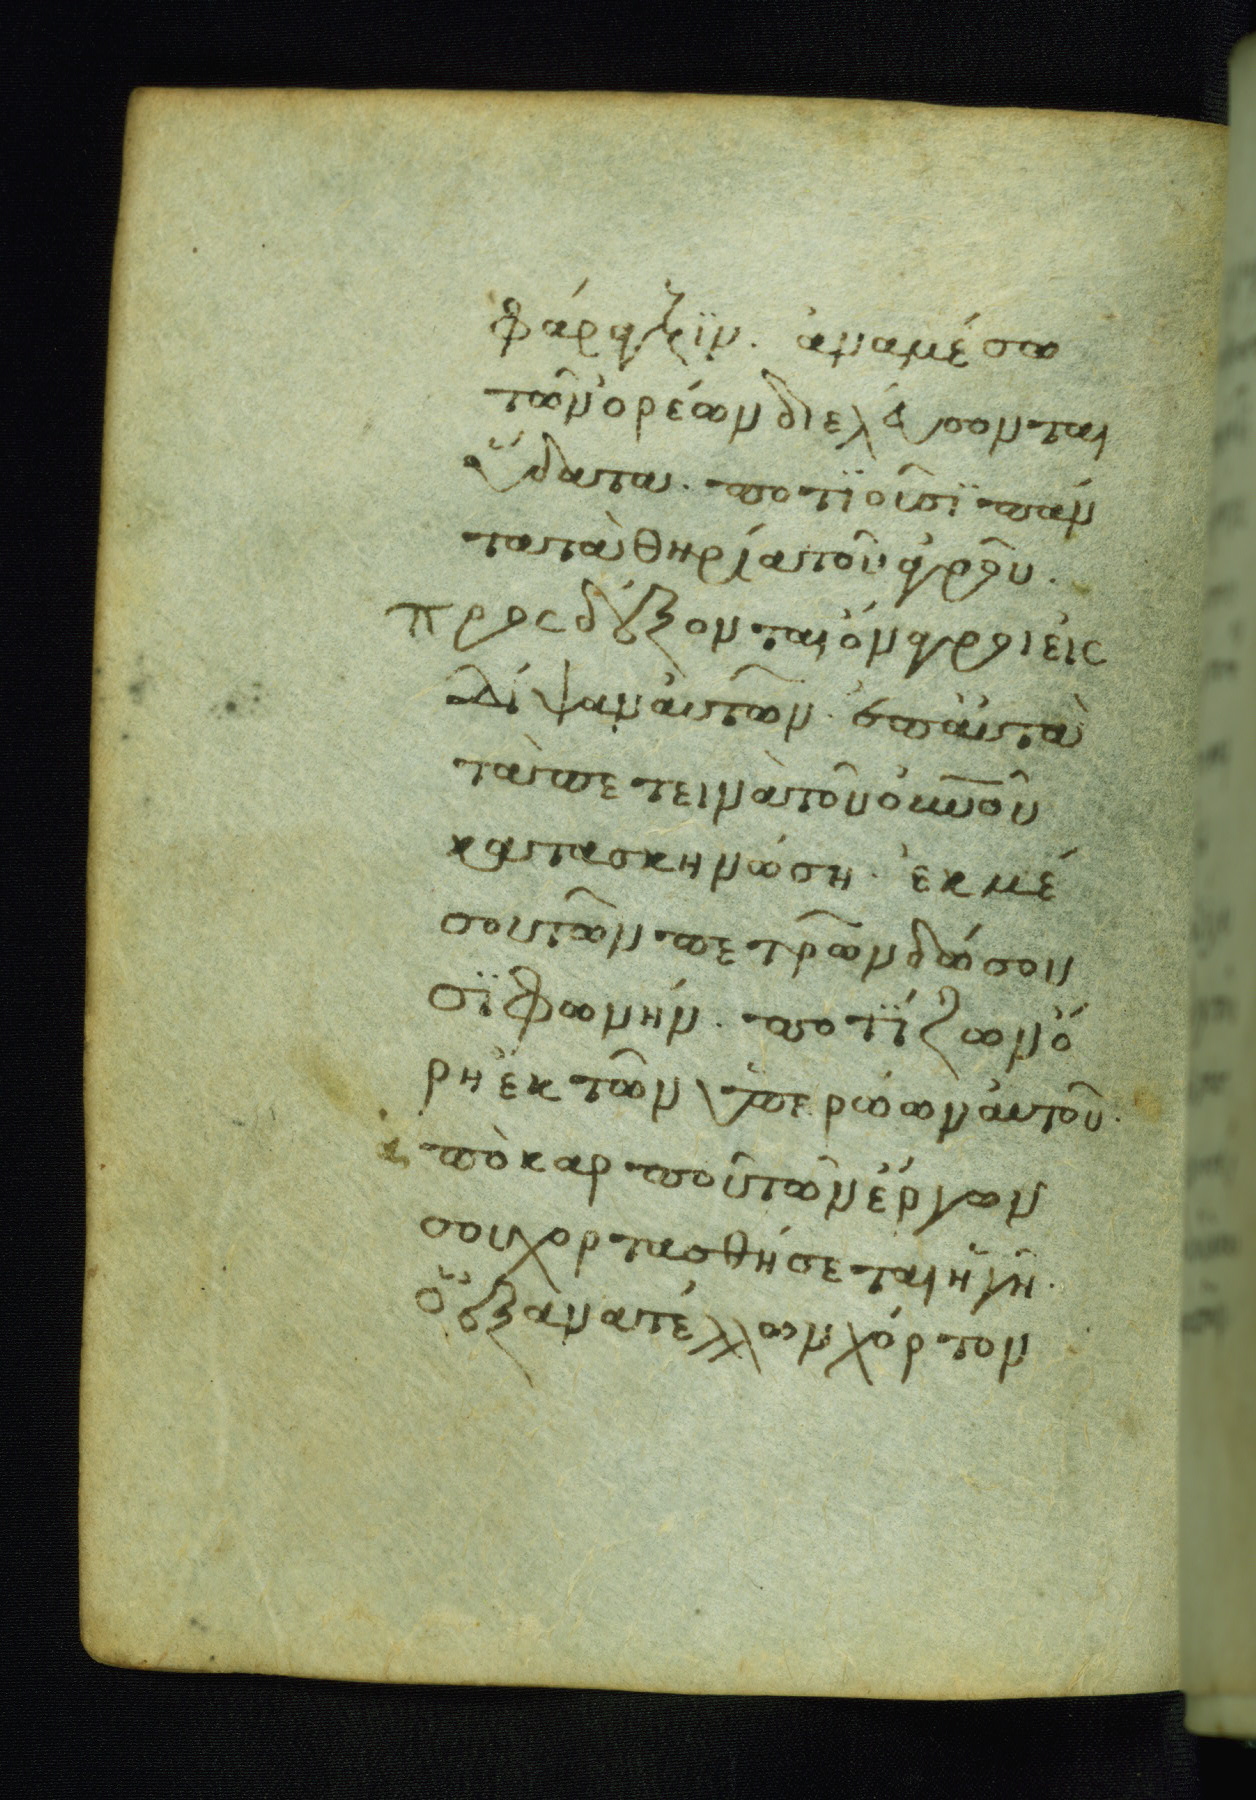 φάραγξϊν. ἀναμέσω
τῶν ὀρέων διελεύσονται
ὕδατα. ποτιοῦσϊ πάν
τατὰ θηρία τοῦ ἀγροῦ.
προσδέξονται ὄναγροι εἰς
δίψαν αὐτῶν. ἐπαυτὰ
τὰ πετεινὰ τοῦ οὐνοῦ
κατασκηνώσει. ἐκ μέ
σου τῶν πετρῶν δώσου
σϊ φωνήν. ποτίζων ὄ
ρη ἐκ τῶν ὑπερώων αὐτοῦ.
ἀπὸ καρποῦ τῶν ἔργων
σου χορτασθήσεται ἡ γῆ.
ὁ ἐξανατέλλων χόρτον